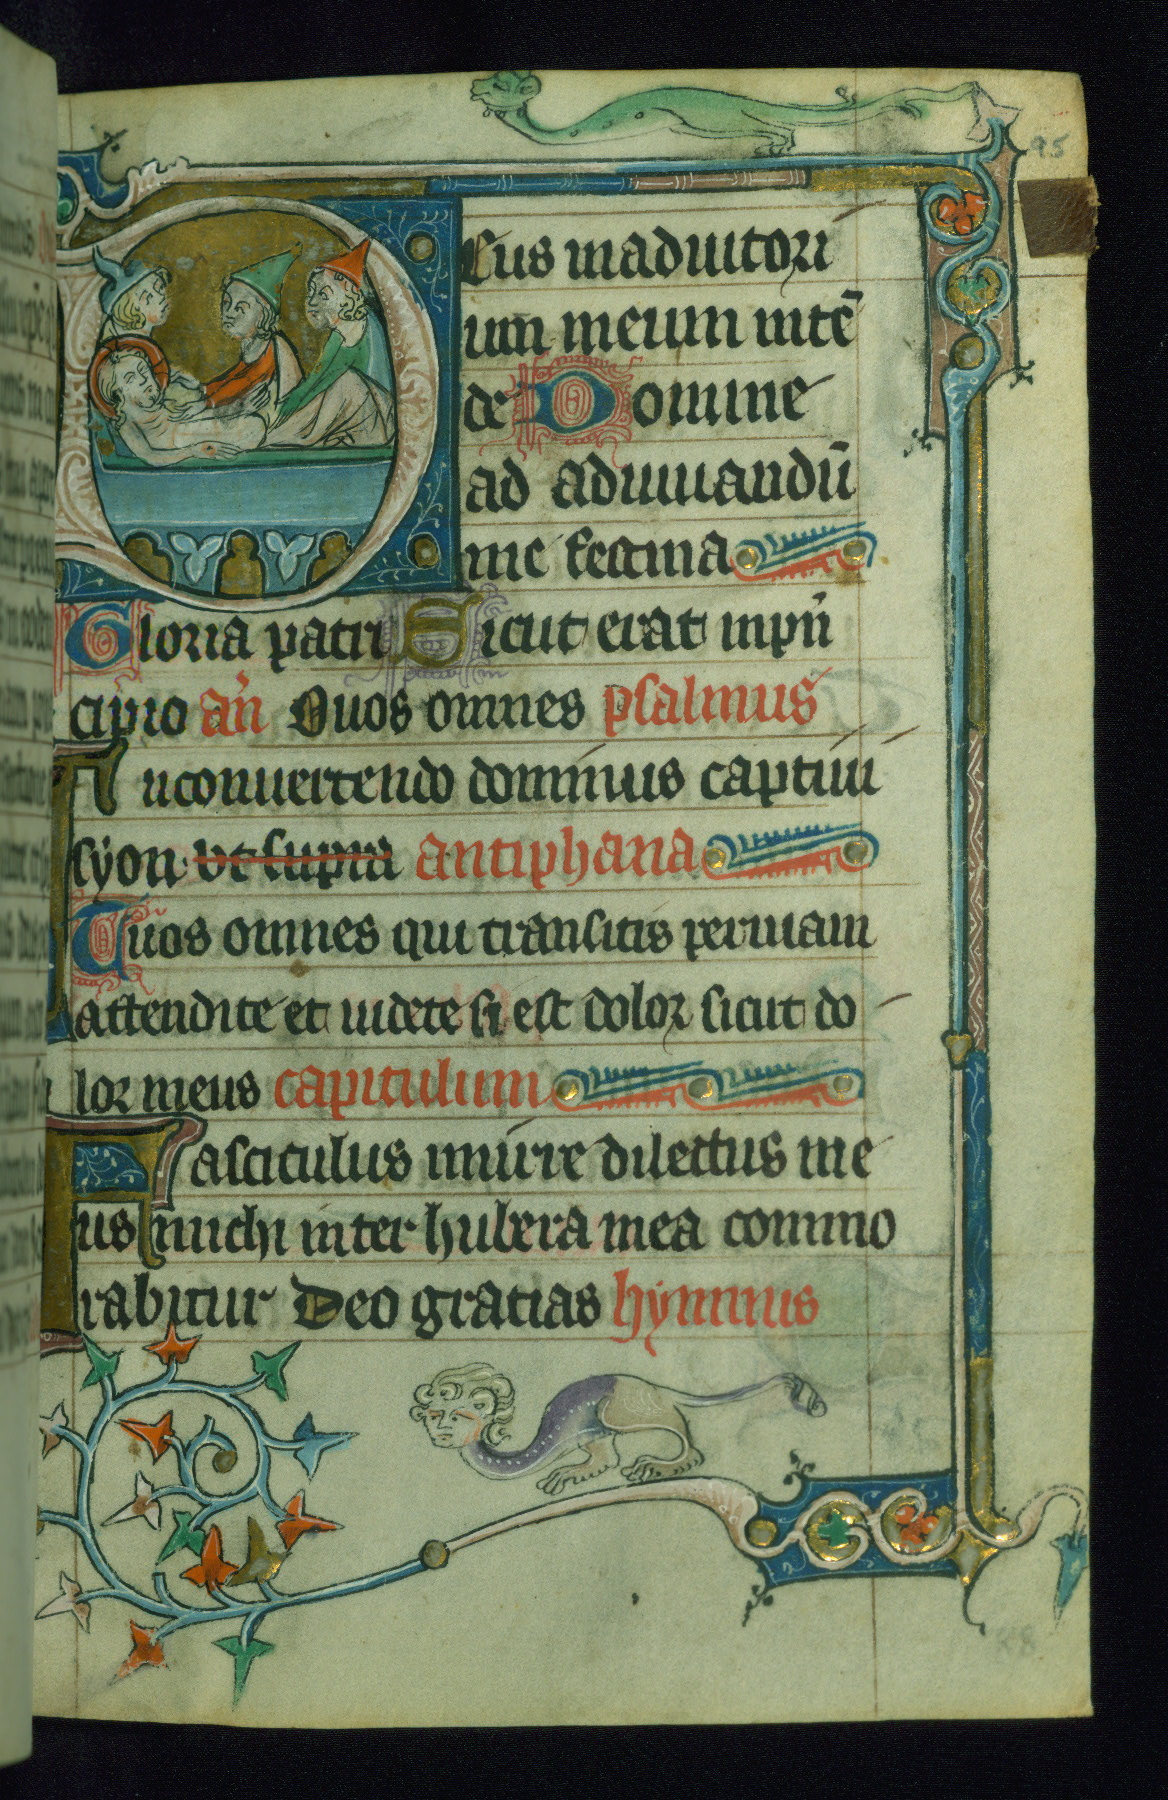 95
Deus in adiutori
um meum intē
de Domine
ad adiuuandū
me festina
Gloria patri Sicut erat inpn̄
cipio an̄ Quos omnes psalmus
In conuertendo dominus captiui
syon vt supra antiphana
Quos omnes qui transitis per uiam
attendite et uidete si est dolor sicut do
lor meus capitulum
Fasciculus mirre dilectus me
us michi inter hubera mea commo
rabitur Deo gratias hymnus
88